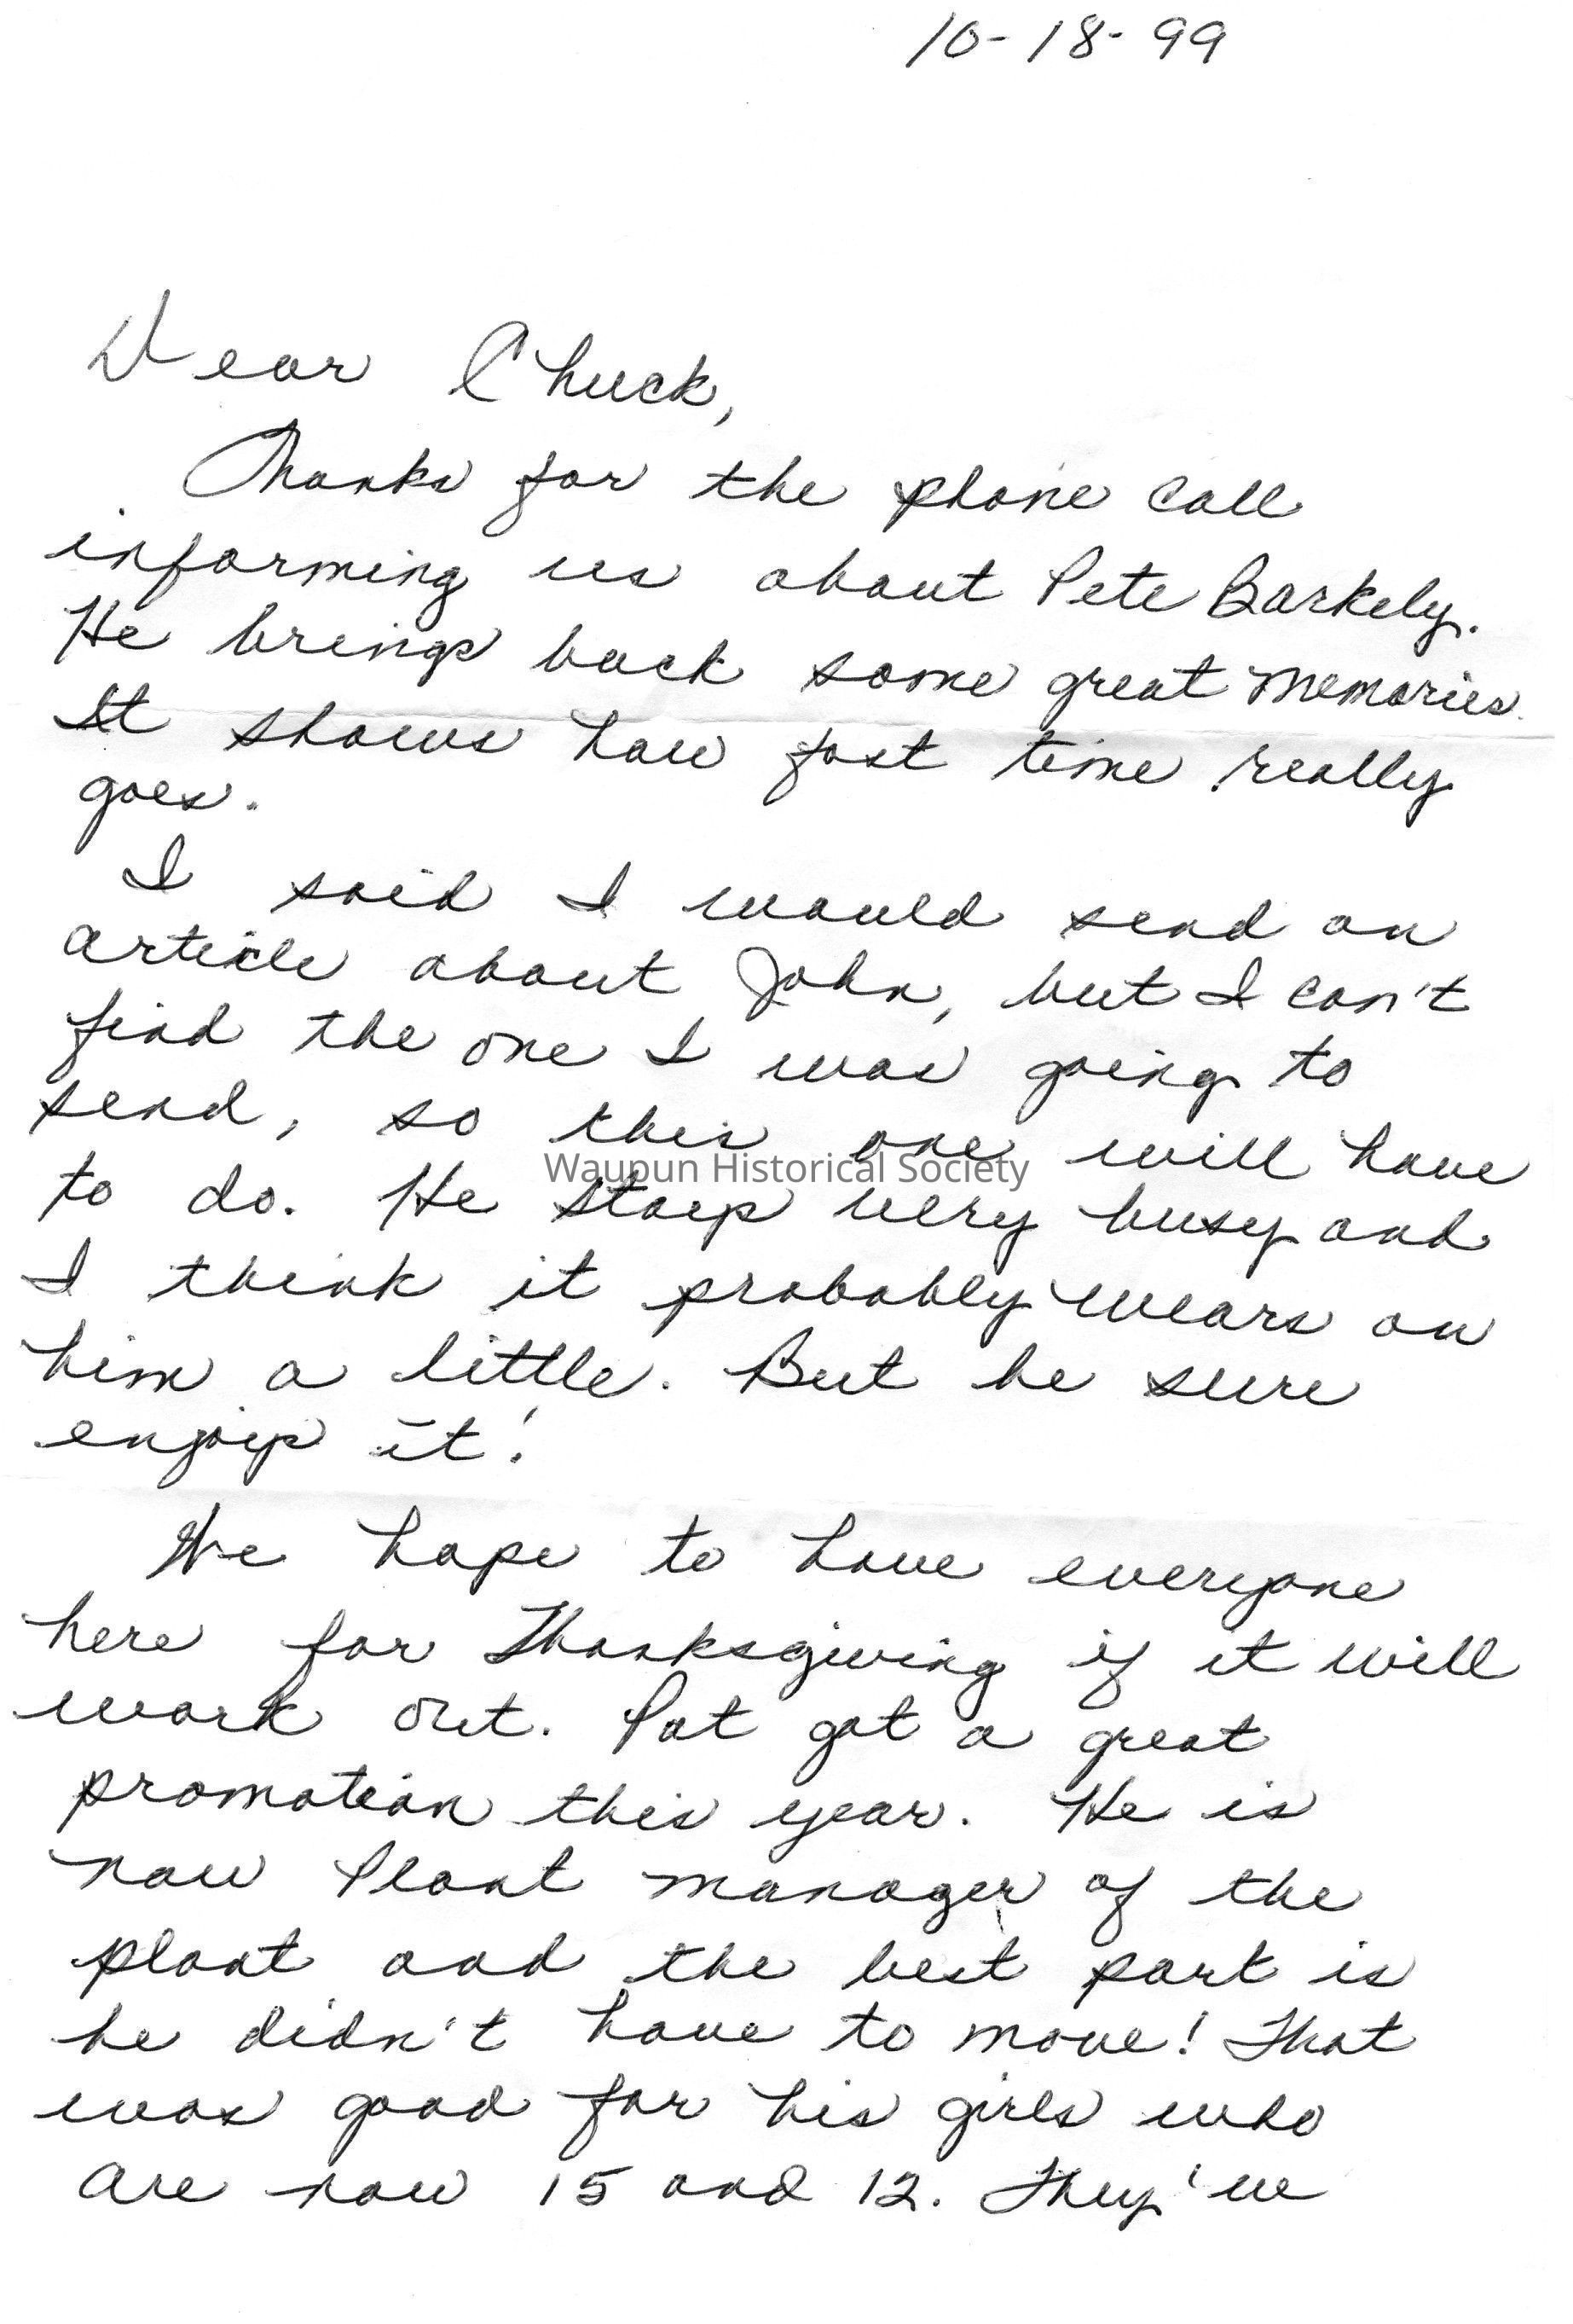 10-18-99
Dear Chuck,
Thanks for the phone call
informing us about Pete Barkely.
He brings back some great memories.
It shows how fast time really
goes.
I said I would send an
article about John, but I can't
find the one I was going to
send, so this one will have
Waupun Historical Society
to do. He stays very busy and
I think it probably wears on
him a little. But he sure
enjoys it!
We hope to have everyone
here for Thanksgiving if it will
work out. Pat got a great
promotion this year. He is
now Plant manager of the
plant and the best part is
he didn't have to move! That
was good for his girls who
are now 15 and 12. They've